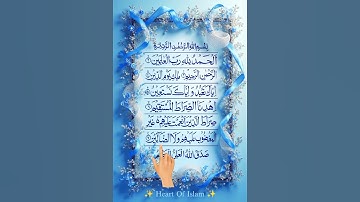 بِسْمِ اللهِ الرَّحْمٰنِ الرَّحِيْمِ
اَلْحَمْدُ لِلّٰهِ رَبِّ الْعٰلَمِيْنَ
الرَّحْمٰنِ الرَّحِيْمِ مٰلِكِ يَوْمِ الدِّيْنِ
اِيَّاكَ نَعْبُدُ وَاِيَّاكَ نَسْتَعِيْنُ
اِهْدِنَا الصِّرَاطَ الْمُسْتَقِيْمَ
صِرَاطَ الَّذِيْنَ اَنْعَمْتَ عَلَيْهِمْ غَيْرِ
الْمَغْضُوْبِ عَلَيْهِمْ وَلَا الضَّآلِّيْنَ
صَدَقَ اللهُ الْعَلِيُّ
✨ Heart Of Islam ✨